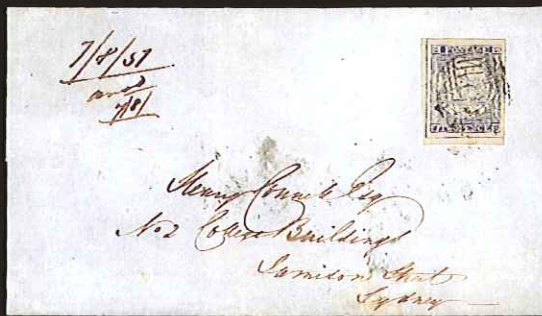 7/8/51
7/8/
POSTAGE
TWO PENCE
Henry Connell Esq
No 2 Buildings
Jamison Street
Sydney